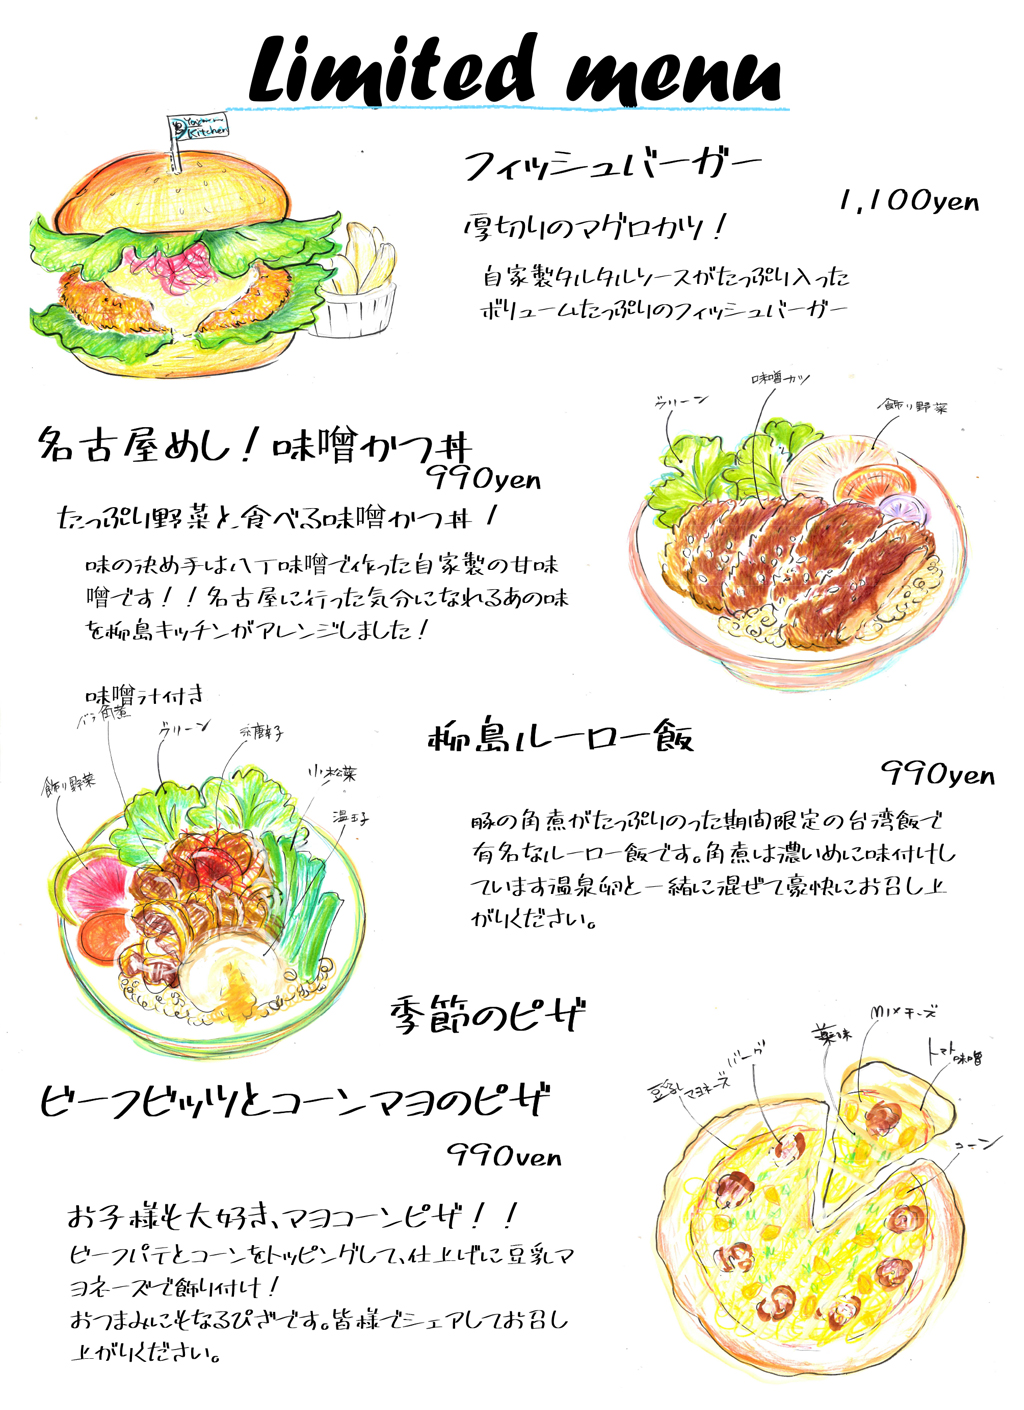 Limited menu
Kitchen
フィッシュバーガー
1,100yen
厚切りのマグロカツ！
自家製タルタルソースがたっぷり入った
ボリュームたっぷりのフィッシュバーガー
グリーン
味噌カツ
飾り野菜
名古屋めし！味噌かつ丼
990yen
たっぷり野菜と食べる味噌かつ丼！
味の決め手は八丁味噌で作った自家製の甘味
噌です！！名古屋に行った気分になれるあの味
を柳島キッチンがアレンジしました！
味噌汁付き
バラ角煮
グリーン
糸唐辛子
小松菜
飾り野菜
温玉
柳島ルーロー飯
990yen
豚の角煮がたっぷりのった期間限定の台湾飯で
有名なルーロー飯です。角煮は濃いめに味付けし
ています温泉卵と一緒に混ぜて豪快にお召し上
がりください。
季節のピザ
ビーフビッツとコーンマヨのピザ
990yen
お子様も大好き、マヨコーンピザ！！
ビーフパテとコーンをトッピングして、仕上げに豆乳マ
ヨネーズで飾り付け！
おつまみにもなるぴざです。皆様でシェアしてお召し
上がりください。
豆乳マヨネーズ
バーグ
薬味
MIXチーズ
トマト味噌
コーン